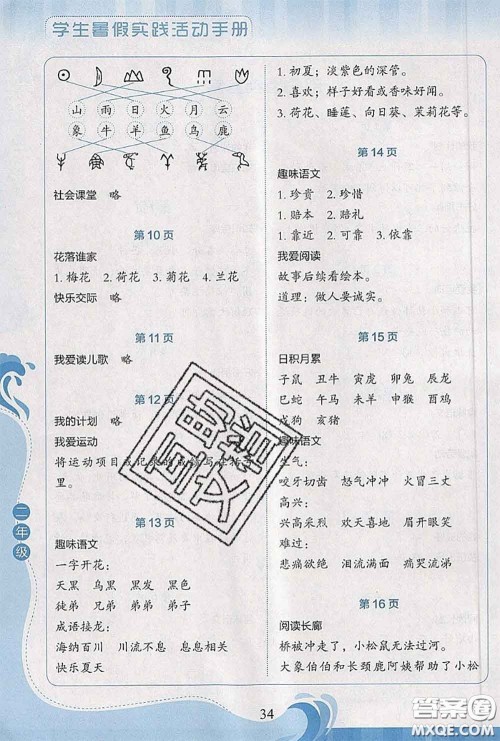 学生暑假实践活动手册
山 雨 日 火 月 云
象 牛 羊 鱼 鸟 鹿
社会课堂 略
第10页
花落谁家
1. 梅花 2. 荷花 3. 菊花 4. 兰花
快乐交际 略
第11页
我爱读儿歌 略
第12页
我的计划 略
我爱运动
将运动项目或记录的成绩写在括号
里。
第13页
趣味语文
一字开花：
天黑 乌黑 黑发 黑板
徒弟 弟兄 弟弟 兄弟
成语接龙：
海纳百川 川流不息 息息相关
快乐夏天
1. 初夏；淡紫色的深管。
2. 喜欢；样子好看或香味好闻。
3. 荷花、睡莲、向日葵、茉莉花等。
第14页
趣味语文
1. 珍贵 2. 珍惜
1. 赔本 2. 赔礼
1. 靠近 2. 可靠 3. 依靠
我爱阅读
故事后续看绘本。
道理：做人要诚实。
第15页
日积月累
子鼠 丑牛 寅虎 卯兔 辰龙
巳蛇 午马 未羊 申猴 酉鸡
戌狗 亥猪
趣味语文
生气：
咬牙切齿 怒气冲冲 火冒三丈
高兴：
兴高采烈 欢天喜地 眉开眼笑
难过：
悲痛欲绝 泪流满面 痛哭流涕
第16页
阅读长廊
桥被冲几了，小松鼠无法过河。
大象伯伯和长颈鹿阿姨帮助了小松
二年级
34
答案圈
MXQE.COM